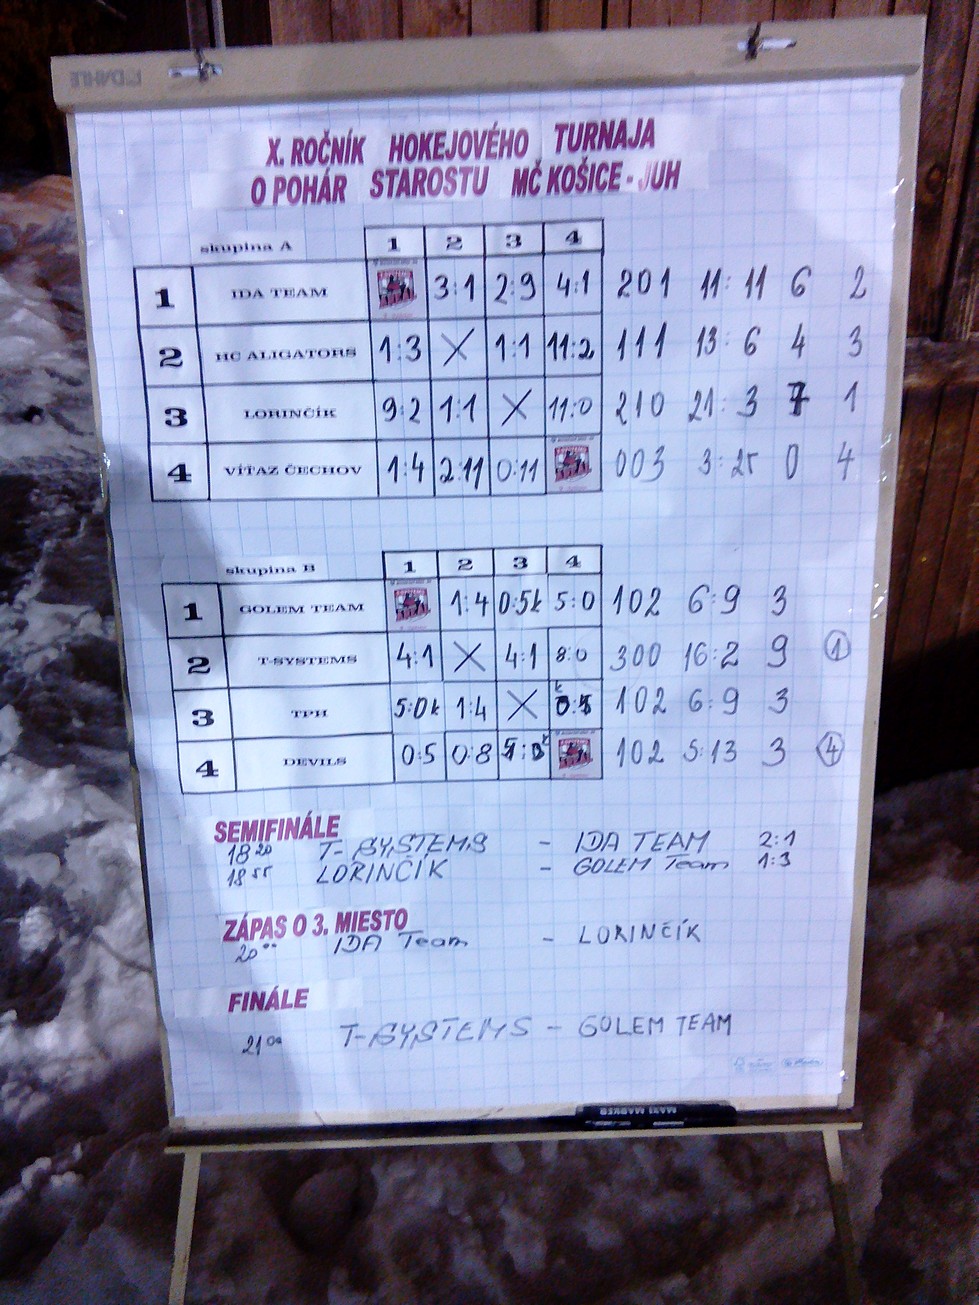 X. ROČNÍK HOKEJOVÉHO TURNAJA
O POHÁR STAROSTU MČ KOŠICE - JUH
skupina A 1 2 3 4
1 IDA TEAM 3:1 2:9 4:1 201 11:11 6 2
2 HC ALIGATORS 1:3 X 1:1 11:2 111 13:6 4 3
3 LORINČÍK 9:2 1:1 X 11:0 210 21:3 7 1
4 VÍŤAZ ČECHOV 1:4 2:11 0:11 003 3:25 0 4
skupina B 1 2 3 4
1 GOLEM TEAM 1:4 0:5k 5:0 102 6:9 3
2 T-SYSTEMS 4:1 X 4:1 8:0 300 16:2 9 1
3 TPH 5:0k 1:4 X 0:5 k 102 6:9 3
4 DEVILS 0:5 0:8 5:0 102 5:13 3 4
SEMIFINÁLE
18 20 T-SYSTEMS - IDA TEAM 2:1
18 55 LORINČÍK - GOLEM Team 1:3
ZÁPAS O 3. MIESTO
20 00 IDA Team - LORINČÍK
FINÁLE
21 00 T-SYSTEMS - GOLEM TEAM
MAXI MARKER